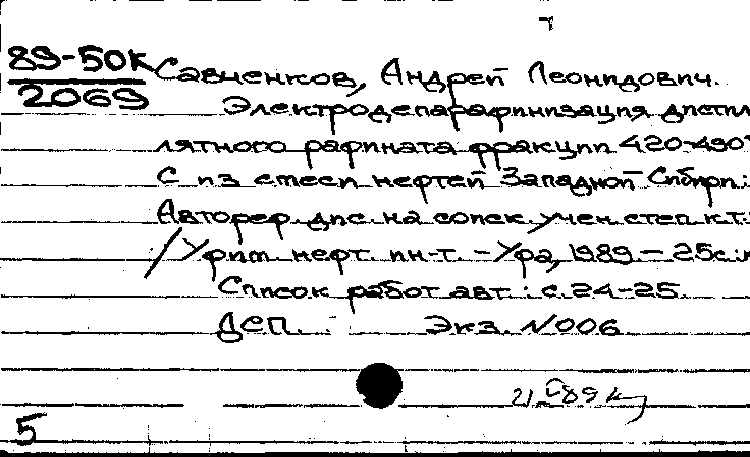 89-50К
2069
Савченков, Андрей Леонидович.
Электродепарафинизация дистил
лятного рафината фракции 420-490°
С из смеси нефтей Западной Сибири:
Автореф. дис. на соиск. учен. степ. к.т.
/Уфим. нефт. ин-т. - Уфа, 1989. - 25с.:
Список работ авт.: с. 24-25.
ДСП. Экз. N006
5